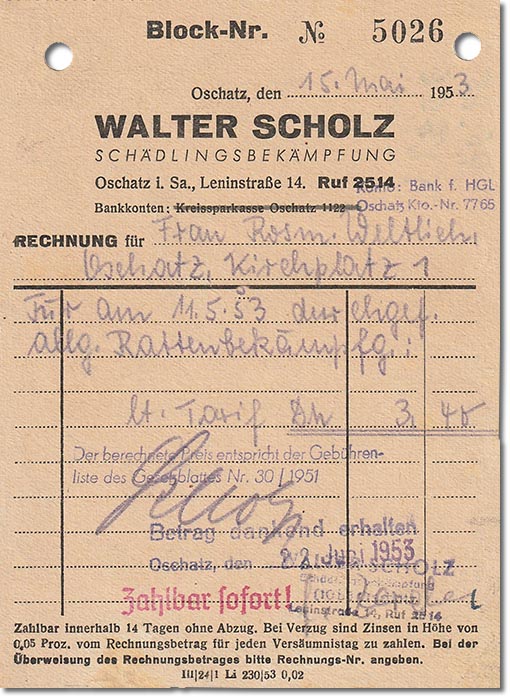 Block-Nr. № 5026
Oschatz, den 15. Mai 1953
WALTER SCHOLZ
SCHÄDLINGSBEKÄMPFUNG
Oschatz i. Sa., Leninstraße 14. Ruf 2514
Konto: Bank f. HGL
Bankkonten: Kreissparkasse Oschatz 1122 Oschatz Kto.-Nr. 7765
RECHNUNG für Frau Rosm. Weltlich,
Oschatz, Kirchplatz 1
Für am 11.5.53 durchgef.
allg. Rattenbekämpfg.:
lt. Tarif DM 3.40
Der berechnete Preis entspricht der Gebühren-
liste des Gesetzblattes Nr. 30/1951
Scholz
Betrag dankend erhalten
Oschatz, den 22. Juni 1953
WALTER SCHOLZ
Schädlingsbekämpfung
Zahlbar sofort!
Leninstraße 14, Ruf 2514
Zahlbar innerhalb 14 Tagen ohne Abzug. Bei Verzug sind Zinsen in Höhe von
0,05 Proz. vom Rechnungsbetrag für jeden Versäumnistag zu zahlen. Bei der
Überweisung des Rechnungsbetrages bitte Rechnungs-Nr. angeben.
III|24|1 Li 230|53 0,02